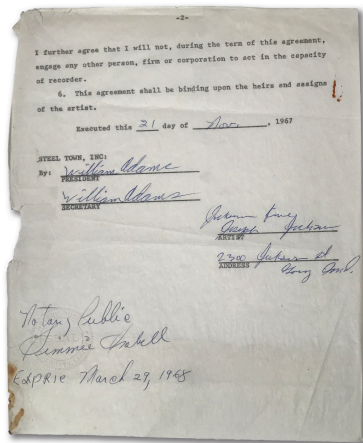 -2-
I further agree that I will not, during the term of this agreement,
engage any other person, firm or corporation to act in the capacity
of recorder.
6. This agreement shall be binding upon the heirs and assigns
of the artist.
Executed this 21 day of Nov. , 1967
STEEL TOWN, INC:
By: William Adams
PRESIDENT
William Adams
SECRETARY
Jackson Five
Joseph Jackson
ARTIST
2300 Jackson St
ADDRESS Gary Ind.
Notary Public
Exprie March 29, 1968